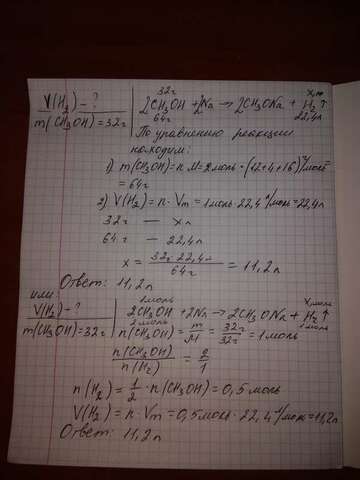 V(H₂) - ?
m(CH₃OH) = 32г
32г x,л
2CH₃OH + 2Na → 2CH₃ONa + H₂↑
64г 22,4л
По уравнению реакции
находим:
1) m(CH₃OH) = n·M = 2моль · (12+4+16) г/моль =
= 64г
2) V(H₂) = n · Vm = 1моль · 22,4 л/моль = 22,4л
32г — xл
64г — 22,4л
x = 32г · 22,4л / 64г = 11,2л
Ответ: 11,2л
или
V(H₂) - ?
m(CH₃OH) = 32г
1моль x,моль
2CH₃OH + 2Na → 2CH₃ONa + H₂↑
2моль 1моль
n(CH₃OH) = m/M = 32г/32г = 1моль
n(CH₃OH)/n(H₂) = 2/1
n(H₂) = 1/2 · n(CH₃OH) = 0,5моль
V(H₂) = n · Vm = 0,5моль · 22,4 л/моль = 11,2л
Ответ: 11,2л